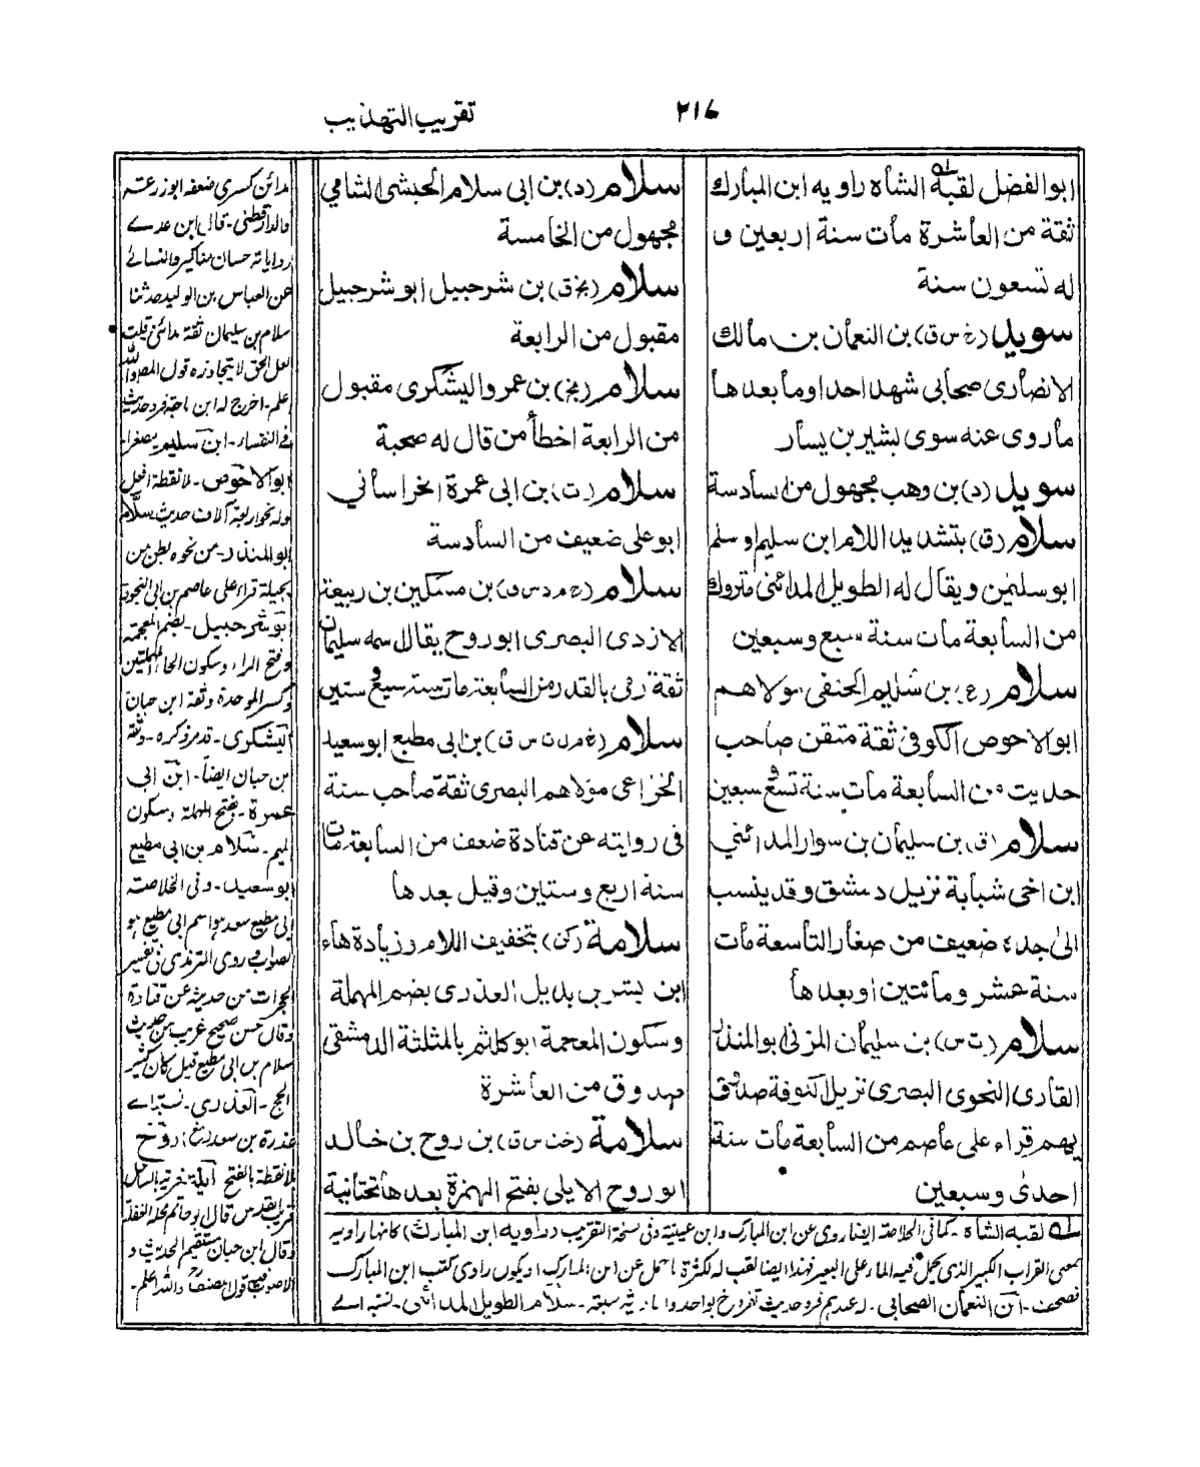 ٢١٦
تقريب التهذيب
ابوالفضل لقبه الشاه راويه ابن المبارك
ثقة من العاشرة مات سنة اربعين و
له تسعون سنة
سويد (خ س ق) بن النعمان بن مالك
الانصارى صحابى شهد احدا وما بعدها
ماروى عنه سوى بشير بن يسار
سويد (د) بن وهب مجهول من السادسة
سلام (ق) بتشديد اللام ابن سليم او سلم
ابو سليمن ويقال له الطويل المدائنى متروك
من السابعة مات سنة سبع وسبعين
سلام (ع) بن سليم الحنفى مولاهم
ابوالاحوص الكوفى ثقة متقن صاحب
حديث من السابعة مات سنة تسع و سبعين
سلام (ق) بن سليمان بن سوار المدائني
ابن اخى شبابة نزيل دمشق وقد ينسب
الى جده ضعيف من صغار التاسعة مات
سنة عشر ومائتين اوبعدها
سلام (ت س) بن سليمان المزنى ابوالمنذر
القارى النحوى البصرى نزيل الكوفة صدوق
يهم قراء على عاصم من السابعة مات سنة
احدى وسبعين
سلام (د) بن ابى سلام الحبشى الشامي
مجهول من الخامسة
سلام (بخ ق) بن شرحبيل ابو شرحبيل
مقبول من الرابعة
سلام (بخ) بن عمرو اليشكرى مقبول
من الرابعة اخطأ من قال له صحبة
سلام (ت) بن ابى عمرة الخراساني
ابوعلى ضعيف من السادسة
سلام (خ م د س ق) بن مسكين بن ربيعة
الازدى البصرى ابو روح يقال اسمه سليمان
ثقة رمى بالقدر من السابعة مات سنة سبع و ستين
سلام (خ م ل ت س ق) بن ابى مطيع ابو سعيد
الخزاعى مولاهم البصرى ثقة صاحب سنة
فى روايته عن قتادة ضعف من السابعة مات
سنة اربع وستين وقيل بعدها
سلامة (كن) بتخفيف اللام وزيادة هاء
ابن بشر بن بديل العذرى بضم المهملة
وسكون المعجمة ابو كلثم بالمثلثة الدمشقى
صدوق من العاشرة
سلامة (خت س ق) بن روح بن خالد
ابو روح الايلى بفتح الهمزة بعدها تحتانية
مدائن كسرى ضعفه ابوزرعة
والدارقطنى - قال ابن عدے
رواياته حسان مناكير والنسائے
عن العباس بن الوليد حدثنا
سلام بن سليمان ثقة مدائنى قلت
لعل الحق لا يتجاوزه قول المصر والله
اعلم - اخرج له ابن ماجة فرد حديث
فى النفساء - ابن سليم مصغرا
ابوالاحوص - لا نقطة افعل
وله نحو اربعة آلاف حديث سلام
ابو المنذر - من نحوه بطن من
بجيلة قراء على عاصم بن ابى النجود
ابو شرحبيل - بضم المعجمة
وفتح الراء وسكون الحاء المهملتين
وكسر الموحدة وثقه ابن حبان
اليشكرى - قد مر ذكره - وثقه
ابن حبان ايضاً - ابن ابى
عمرة - بفتح المهملة وسكون
الميم - سلام بن ابى مطيع
ابوسعيد - وفى الخلاصة
ابى مطيع سعد هو اسم ابى مطيع هو
الصواب و روى الترمذى فى تفسير
الحجرات من حديثه عن قتادة
وقال حسن صحيح غريب من حديث
سلام بن ابى مطيع قيل كان كثير
الحج - العذرى - نسبة اے
عذرة بن سعد (تخ) روح
لا نقطة بالفتح ايلة قرية بالساحل
قريب القدس قال ابوحاتم محله الغفلة
وقال ابن حبان مستقيم الحديث و
الاصوب فيه قول المصنف والله اعلم -
له لقبه الشاه - كما فى الخلاصة ايضا روى عن ابن المبارك وابن عيينة وفى نسخة التقريب (راويه ابن المبارك) كانها راويه
بمعنى القراب الكبير الذى يحمل فيه الماء على البعير فهذا ايضا لقب له لكثرة ما حمل عن ابن المبارك او يكون راوى كتب ابن المبارك
فصحف - ابن النعمان الصحابى - له عندهم فرد حديث تفرد خ بواحد و سبعة - سلام الطويل المدائنى - نسبة اے